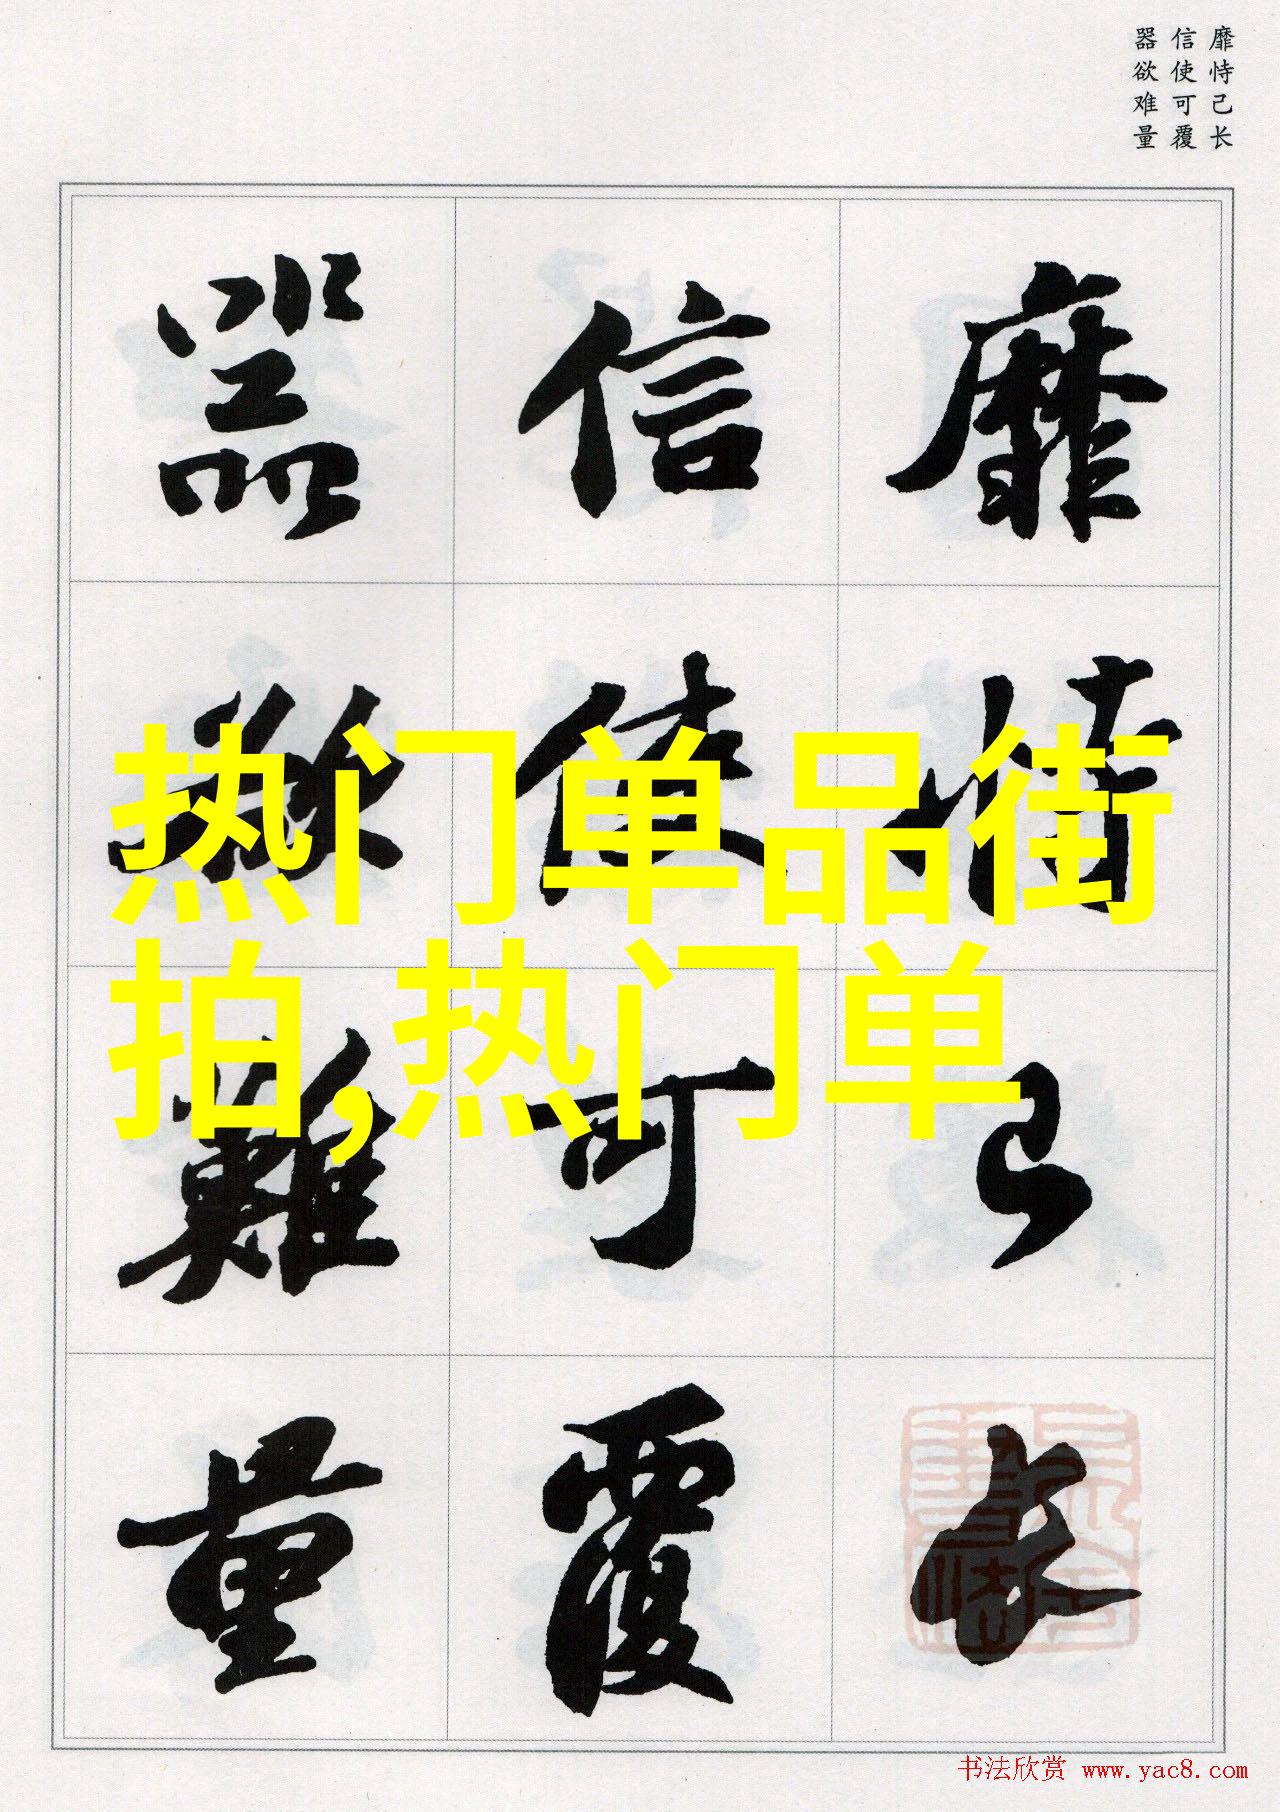 靡恃己长
信使可覆
器欲难量
靡恃己長
信使可覆
器欲難量
热门单品街
拍,热门单
书法欣赏 www.yac8.com